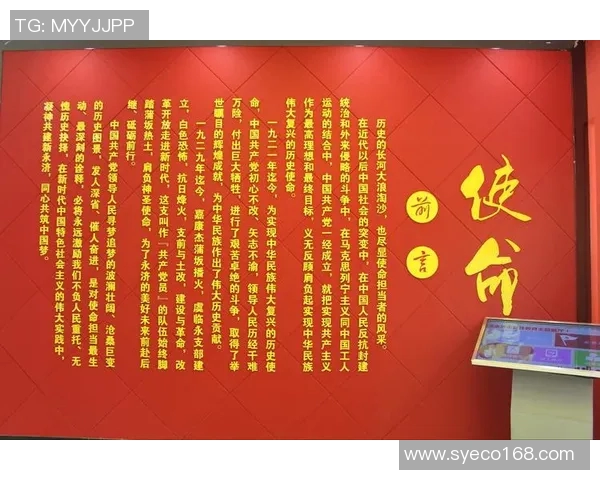 TG: MYYJJPP
使命
前言
历史的长河大浪淘沙，也尽显使命担当者的风采。
在近代以后中国社会的突变中，在中国人民反抗封建
统治和外来侵略的斗争中，在马克思列宁主义同中国工人
运动的结合中，中国共产党一经成立，就把实现共产主义
作为最高理想和最终目标，义无反顾肩负起实现中华民族
伟大复兴的历史使命。
一九二一年迄今，为实现中华民族伟大复兴的历史使
命，中国共产党初心不改、矢志不渝，领导人民历经千难
万险，付出巨大牺牲，进行了艰苦卓绝的斗争，取得了举
世瞩目的辉煌成就，为中华民族作出了伟大历史贡献。
一九二九年迄今，嘉康杰蒲坂播火，虞临永支部建
立，白色恐怖，抗日烽火，支前与土改，建设与革命，改
革开放走进新时代，这支叫作“共产党员”的队伍始终脚
踏蒲坂热土，肩负神圣使命，为了永济的美好未来前赴后
继、砥砺前行。
中国共产党领导人民寻梦追梦的波澜壮阔、沧桑巨变
的历史图景，发人深省、催人奋进，是对使命担当最生
动、最深刻的诠释，必将永远激励我们不负人民重托、无
愧历史抉择，在新时代中国特色社会主义的伟大实践中，
凝神共建新永济，同心共筑中国梦。
www.syeco168.com